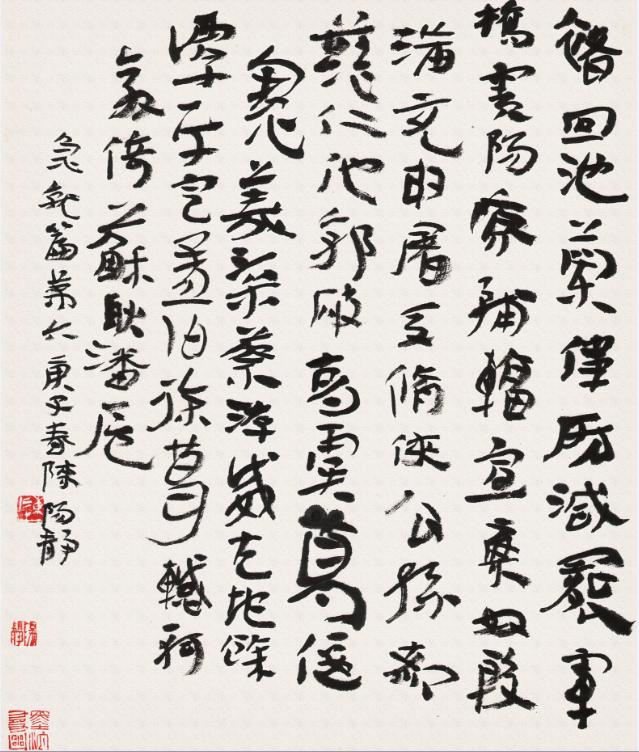 褚回池蘭偉房減罷軍
橋竇陽原輔輻宣棄奴殷
滿充申屠夏脩俠公孫都
慈仁他郭破高虞葛偃
憲義渠蔡游威左地餘
譚平定孟伯徐葛轗軻
敦倚蘇耿潘扈
急就篇第六庚子春陳陽靜